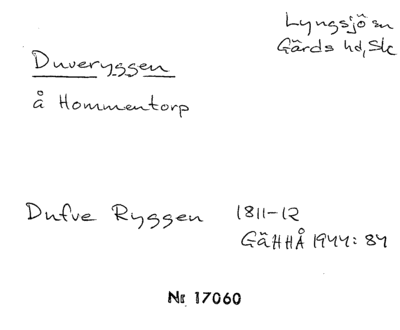 Lyngsjö sn
Gärds hd, Sk
Duveryggen
å Hommentorp
Dufve Ryggen 1811-12
GäHHÅ 1944: 84
Nr 17060